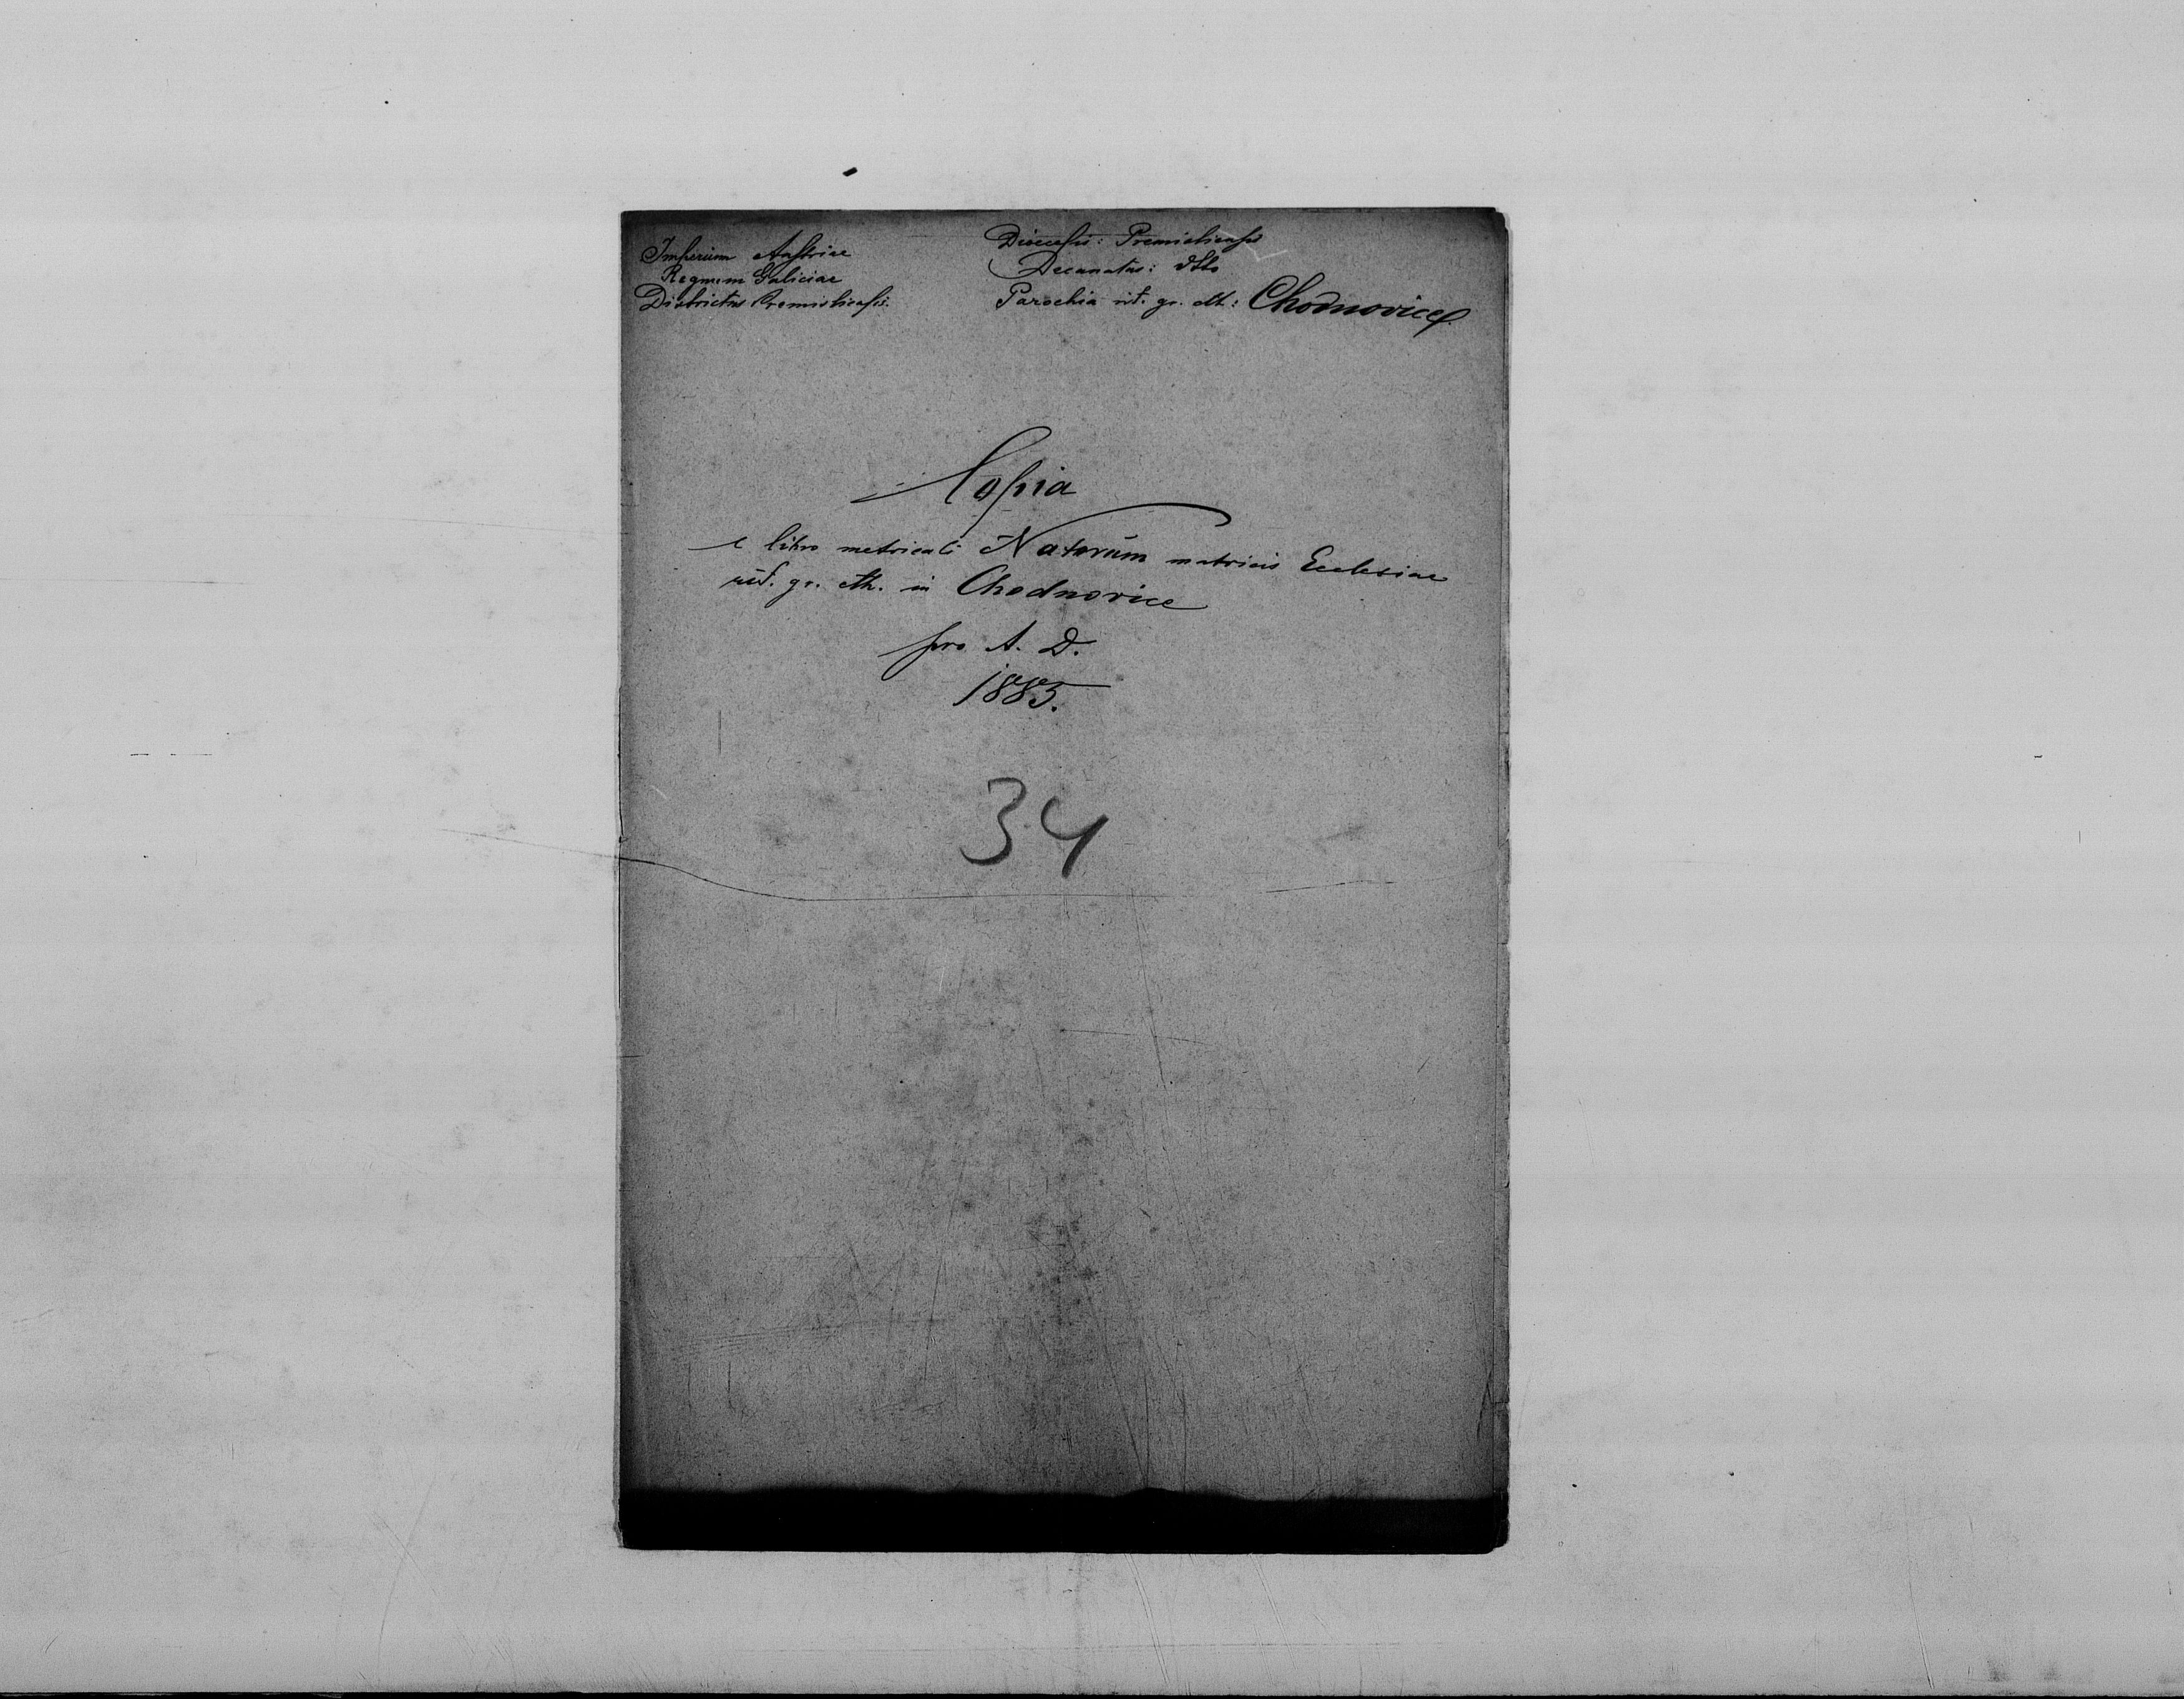 Imperium Austriae
Regnum Galiciae
Districtus Premisliensis.
Diocesis: Premisliensis
Decanatus: dtto
Parochia rit. gr. cth.: Chodnovice
Copia
e libro metricali Natorum matricis Ecclesiae
rit. gr. cth. in Chodnovice
pro A. D.
1885.
34